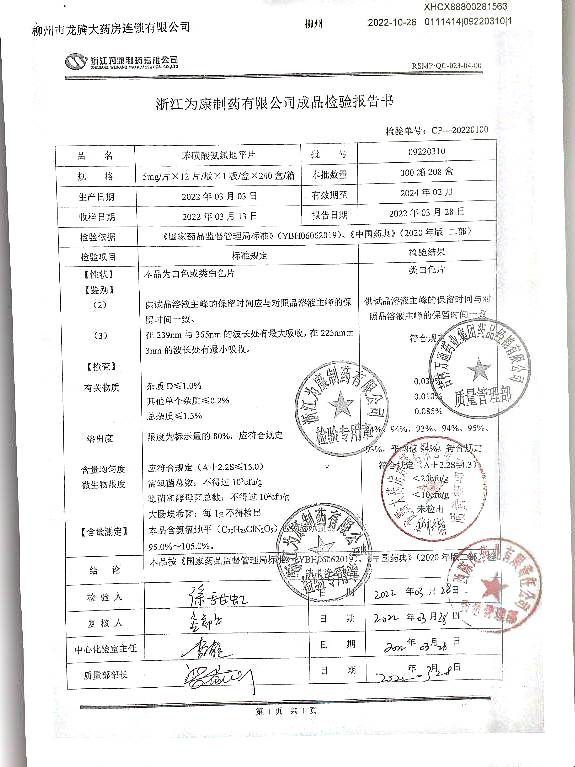 XHCX88800281563
柳州市龙腾大药房连锁有限公司 柳州 2022-10-26 0111414|09220310|1
浙江为康制药有限公司
RSMP·QC-023-04-00
浙江为康制药有限公司成品检验报告书
检验单号：CP—20220100
品 名 苯磺酸氨氯地平片 批 号 09220310
规 格 5mg/片×12片/板×1板/盒×240盒/箱 本批数量 300箱208盒
生产日期 2022年03月03日 有效期至 2024年02月
收样日期 2022年03月13日 报告日期 2022年03月28日
检验依据 《国家药品监督管理局标准》（YBH06062019）、《中国药典》（2020年版二部）
检验项目 标准规定 检验结果
【性状】 本品为白色或类白色片 类白色片
【鉴别】
（2） 供试品溶液主峰的保留时间应与对照品溶液主峰的保留时间一致。 供试品溶液主峰的保留时间与对照品溶液主峰的保留时间一致
（3） 在239nm与365nm的波长处有最大吸收，在225nm±3nm的波长处有最小吸收。 符合规定
【检查】
有关物质 杂质D≤1.0%
其他单个杂质≤0.2% 0.010%
总杂质≤1.3% 0.085%
溶出度 限度为标示量的80%，应符合规定 94%、93%、94%、95%、
平均值94%，符合规定
含量均匀度 应符合规定（A＋2.2S≤15.0） 符合规定
微生物限度 需氧菌总数：不得过10³cfu/g
霉菌和酵母菌总数：不得过10²cfu/g <10cfu/g
大肠埃希菌：每1g不得检出 未检出
【含量测定】 本品含氨氯地平（C₂₀H₂₅ClN₂O₅）
95.0%～105.0%。
结 论 本品按《国家药品监督管理局标准》（YBH06062019）、《中国药典》（2020年版二部）
检 验 人 日 期 2022年03月28日
复 核 人 日 期 2022年03月28日
中心化验室主任 日 期 2022年03月28日
质量部部长 日 期 2022年03月28日
第 1 页 共 1 页
浙江为康制药有限公司
检验专用章
浙江为康制药有限公司
质量管理部